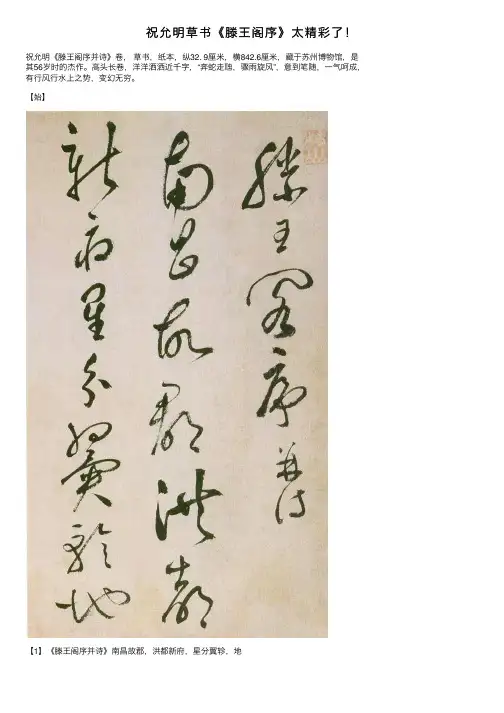 祝允明草书《滕王阁序》太精彩了！
祝允明《滕王阁序并诗》卷， 草书，纸本，纵32. 9厘米，横842.6厘米，藏于苏州博物馆，是
其56岁时的杰作。高头长卷，洋洋洒洒近千字，“奔蛇走虺，骤雨旋风”，意到笔随，一气呵成，
有行风行水上之势，变幻无穷。
【始】
滕王閣序并詩
南昌故郡洪都
新府星分翼軫地
【1】《滕王阁序并诗》南昌故郡，洪都新府，星分翼轸，地